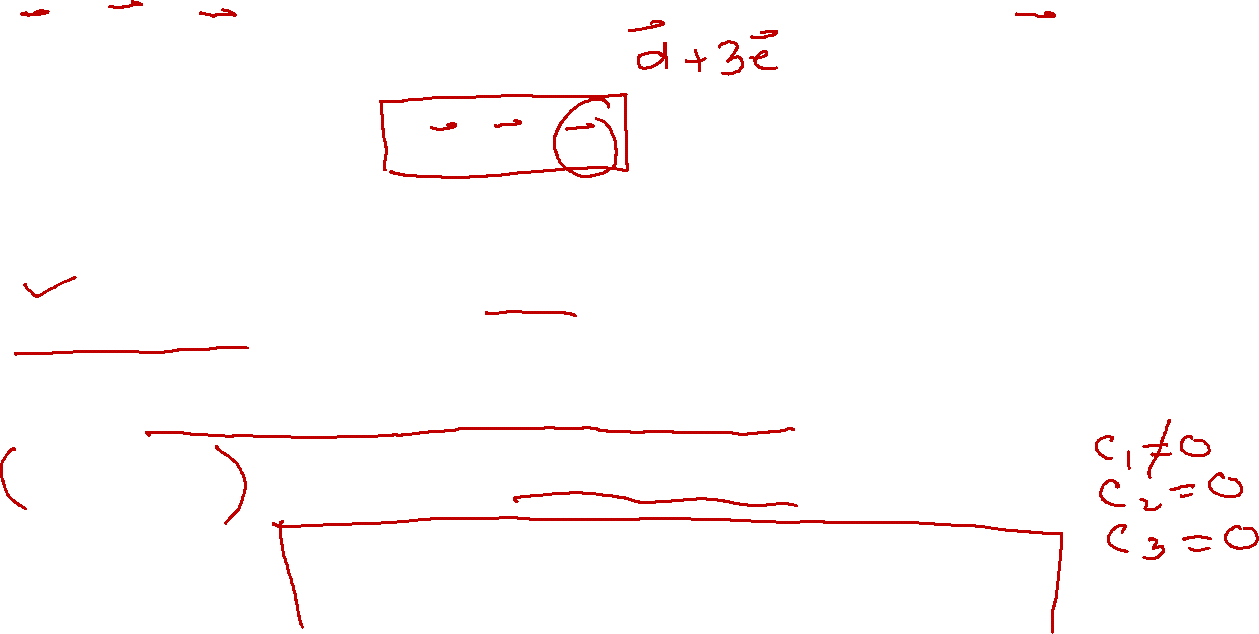 d⃗ + 3e⃗
c₁ ≠ 0
c₂ = 0
c₃ = 0